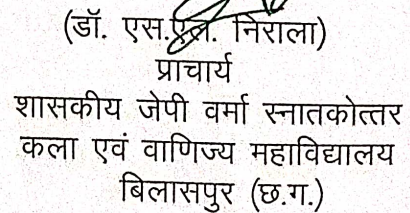 (डॉ. एस.एल. निराला)
प्राचार्य
शासकीय जेपी वर्मा स्नातकोत्तर
कला एवं वाणिज्य महाविद्यालय
बिलासपुर (छ.ग.)